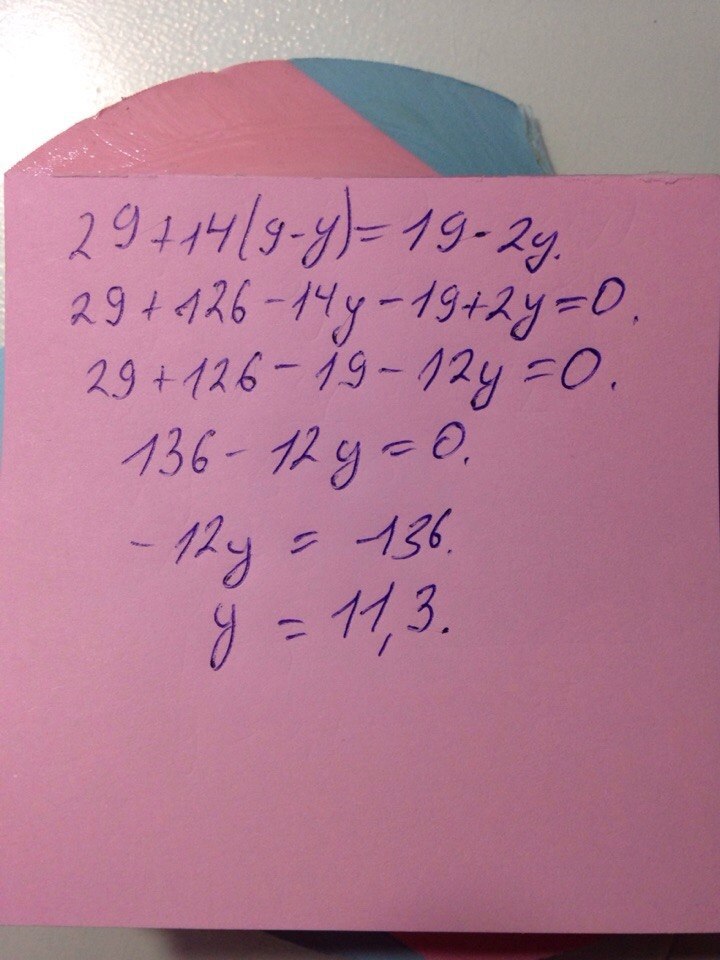 29+14(9-y)=19-2y.
29+126-14y-19+2y=0.
29+126-19-12y=0.
136-12y=0.
-12y=-136.
y=11,3.